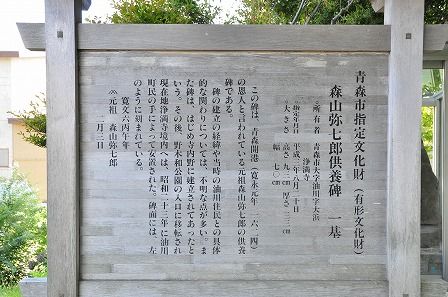 青森市指定文化財（有形文化財）
森山弥七郎供養碑　一基
○所有者　青森市大字油川字大浜
浄満寺
○指定年月日　平成　年　月二十日
○大きさ　高さ九二cm　厚さ二三cm
幅　七〇cm
この碑は、青森開港（寛永元年　一六二四）
の恩人と言われている元祖森山弥七郎の供養
碑である。
碑の建立の経緯や当時の油川住民との具体
的な関わりについては、不明な点が多い。ま
た碑は、はじめ寺内野に建立されてあったと
いう。その後、野木和公園の入口に移転され
現在地浄満寺境内へは、昭和二十三年に油川
町民の手によって安置された。碑面には、左
のように刻まれている。
寛文六丙午年
元祖　森山弥七郎
二月三日